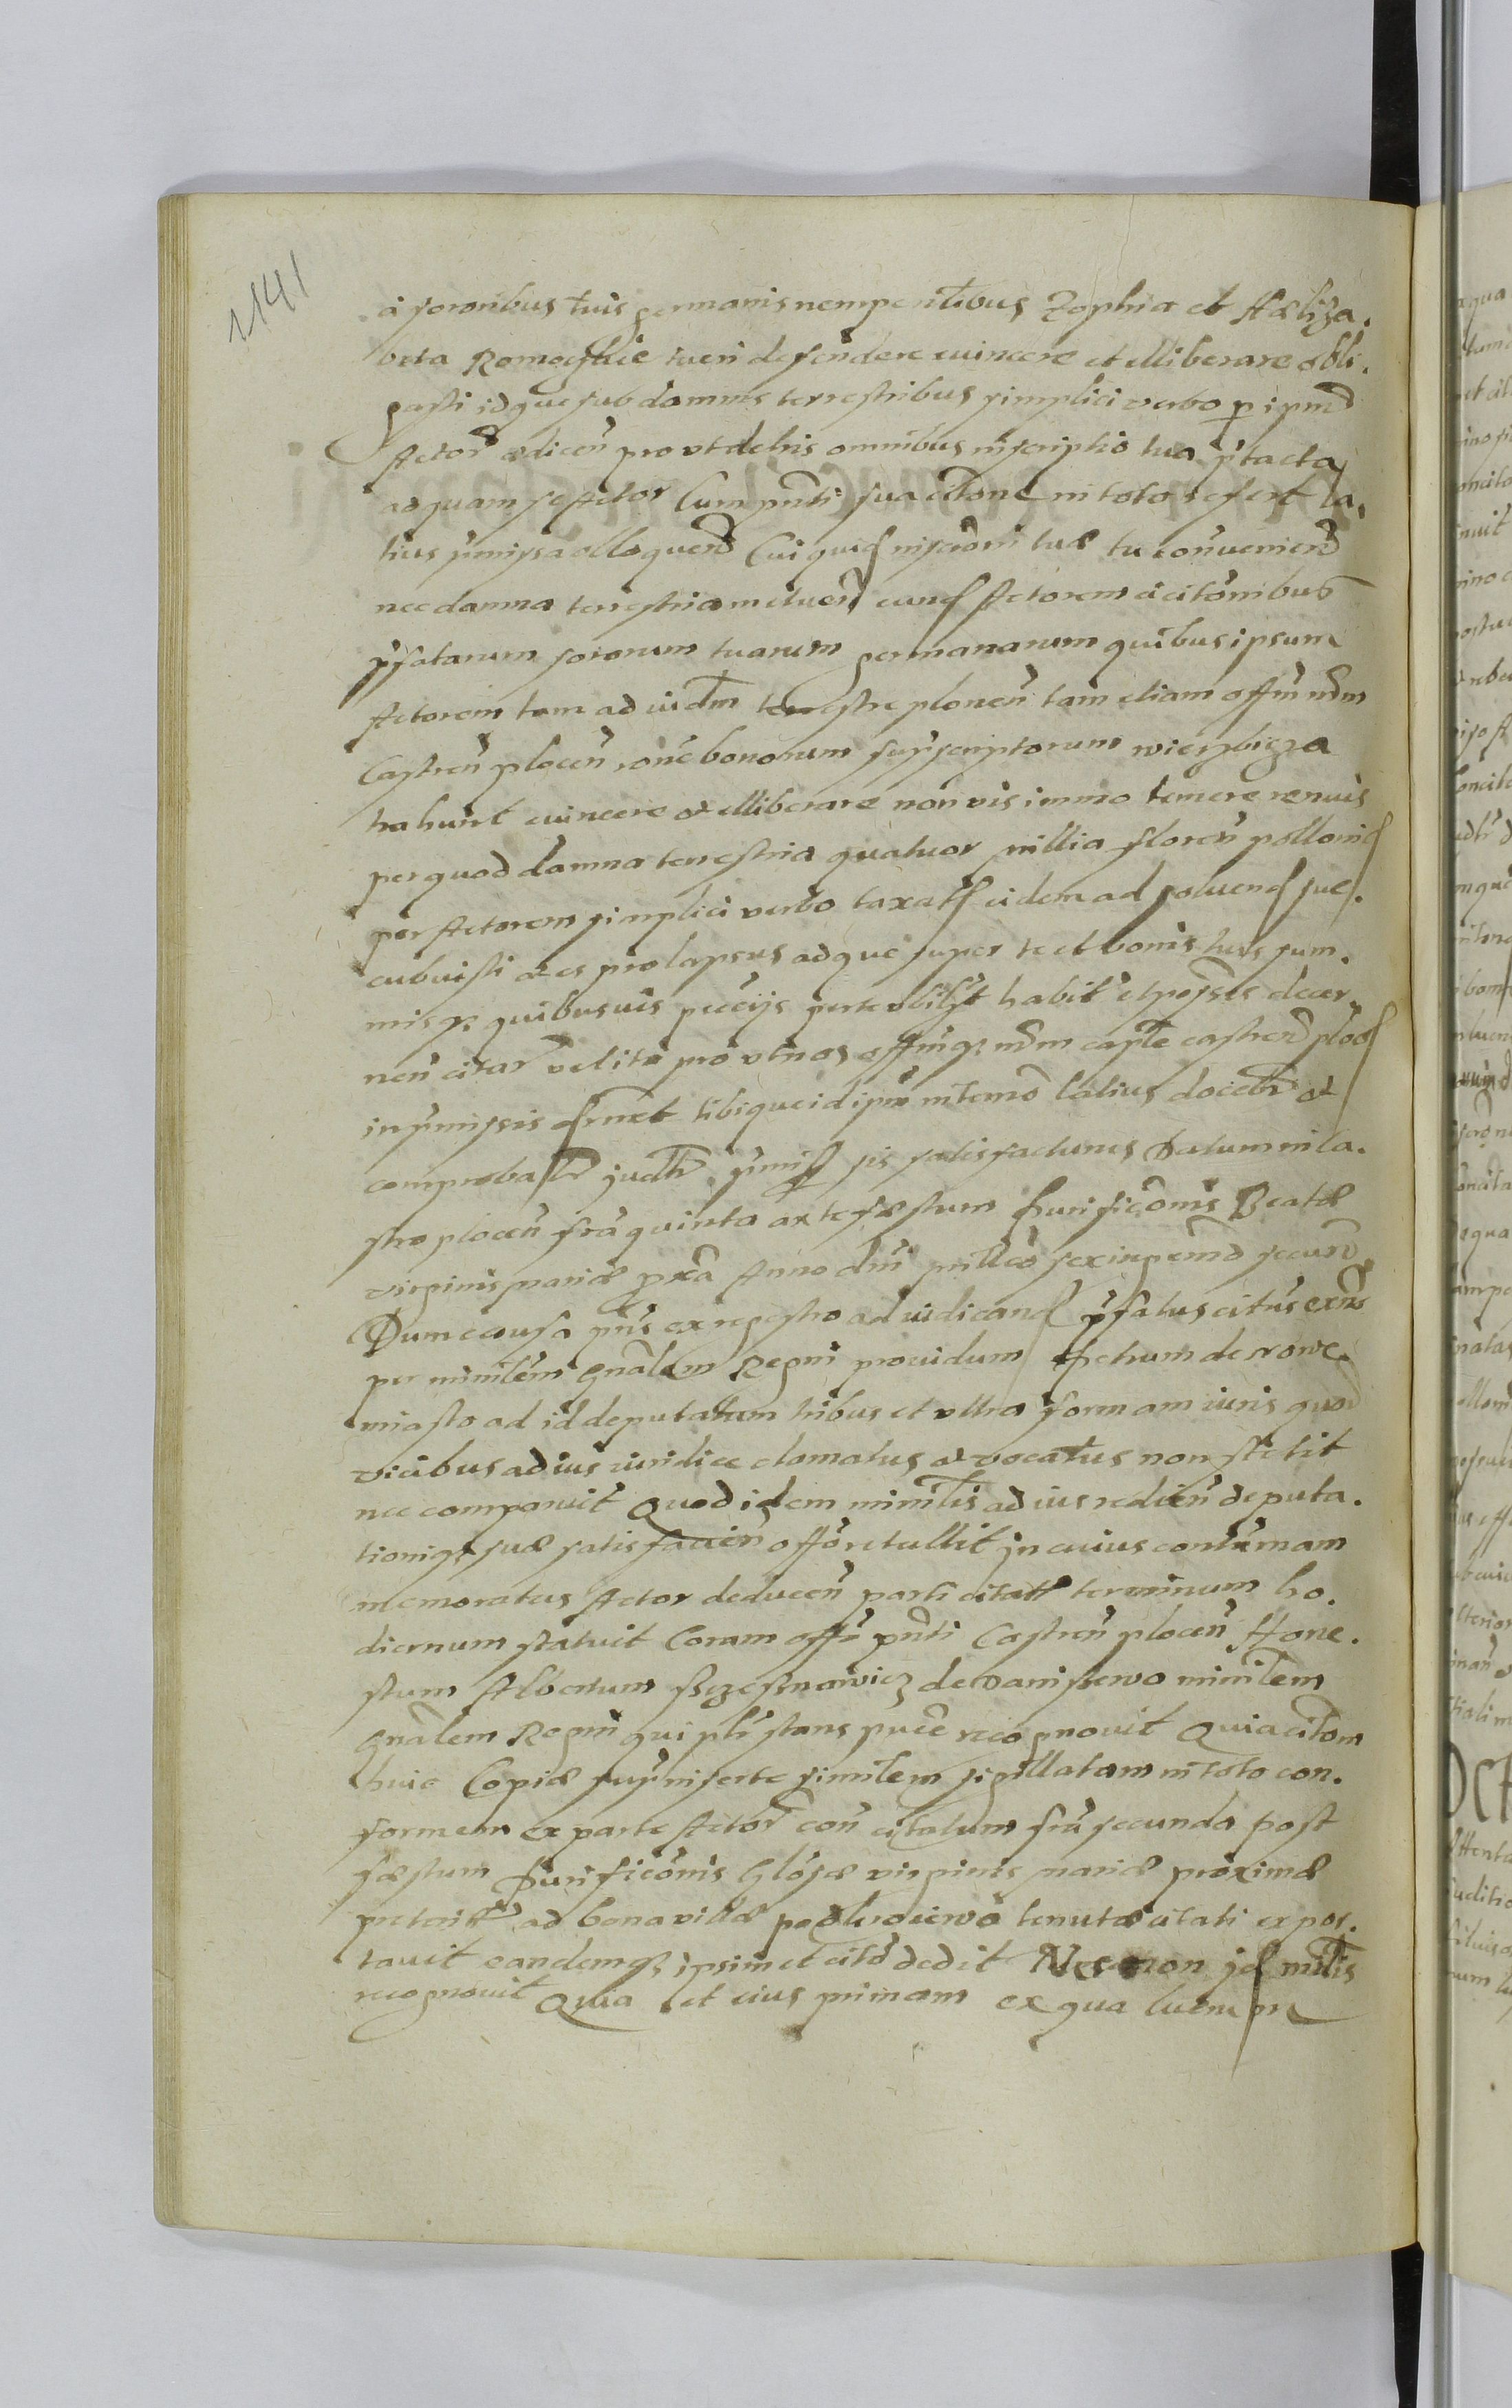 1141
a sororibus tuis germanis nempe ntibus Zophia et Hæliza.
beta Romoczkie tueri defendere euincere et elliberare obli.
gasti idque sub damnis terrestribus simplici verbo p ipm
Actor ædicen pro vt de his omnibus inscriptio tua ptacta
ad quam se Actor Cum pnti sua citone in toto refert la.
tius pmissa olloquend Cui quid inscrõni tuæ tu contravenien
nec damna terrestria metuen eund Actorem a citonibus
pfatarum sororum tuarum germanarum quibus ipsum
Actorem tam ad iudm terrestre plocen tam etiam offm ndm
Castren plocen rone bonorum supscriptorum wierzbicza
trahunt euincere et elliberare non vis immo temere renuis
per quod damna terrestria quatuor millia floren pollonic
per Actorem simplici verbo taxat eidem ad soluend suc.
cubuisti et es prolapsus adque super te et bonis tuis sum.
misq quibusuis pecuijs per te vbilibt habit et posses decer.
nen citar velit pro vt nos offmq ndm captle castren ploc
in pmissis decrnet tibi que id ipm in termo latius docebr et
comprobabr judtr pmiss sis satisfacturus Datum in Ca.
stro plocen fria quinta ante fæstum Purificonis Beatæ
virginis mariæ pxa Anno dni milleo sexingenmo secundo
Dum causa pns ex regestro ad iudicand pfatus citus exns
per minlem gnalem Regni prouidum Petrum de nowe
miasto ad id deputatum tribus et vltra formam iuris quod
vicibus ad ius iuridice clamatus et vocatus non stetit
nec comparuit Quod idem minlis ad ius redien deputa.
tioniq suæ satisfacien offo retullit jn cuius contumam
memoratus Actor deducen parti citatæ terminum ho.
diernum statuit Coram offo pnti Castren plocen Hone.
stum Albertum Szczesnawicz de Daniszewo minlem
gnalem Regni qui pltr stans puce recognouit Quia citom
huic Copiæ supinserte similem sigillatam in toto con.
formem ex parte Actor con citatum fria secunda post
fæstum Purificonis Glosæ virginis mariæ proximæ
preterit ad bona villæ tenutæ citati expor.
tauit eandemq ipsimet cito dedit Necnon jd minlis
recognouit Quia et eius primam ex qua luerum